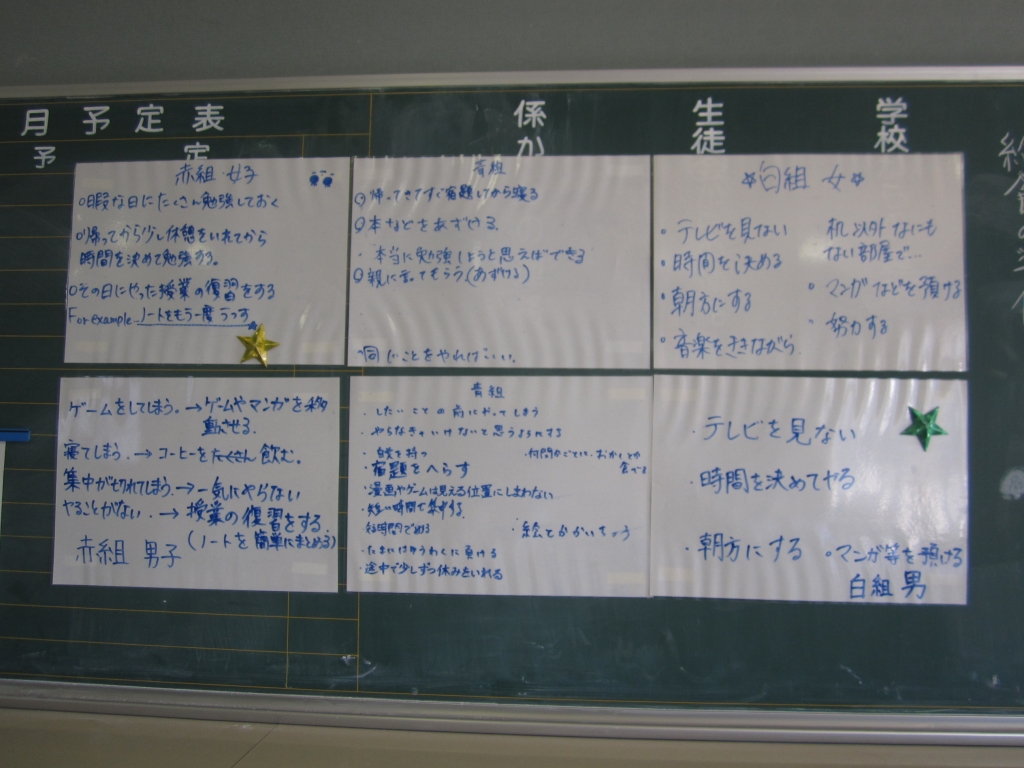 月予定表
予定
係か
生徒
学校
赤組 女子
○暇な日にたくさん勉強しておく
○帰ってから少し休憩をいれてから
時間を決めて勉強する。
○その日にやった授業の復習をする
For example ノートをもう一度うつす
青組
○帰ってきてすぐ宿題してから寝る
○本などをあずける
・本当に勉強しようと思えばできる
○親に言ってもらう(あずける)
・同じことをやれば……。
☆白組 女☆
・テレビを見ない
・時間を決める
・朝方にする
・音楽をききながら
机以外なにも
ない部屋で…
・マンガなどを預ける
・努力する
ゲームをしてしまう。→ゲームやマンガを移
動させる。
寝てしまう。→コーヒーをたくさん飲む。
集中が切れてしまう。→一気にやらない
やることがない。→授業の復習をする。
(ノートを簡単にまとめる)
赤組 男子
青組
・したいことの前にやってしまう
・やらなきゃいけないと思うようにする
・宿題をへらす
・漫画やゲームは見える位置にしまわない
・短い時間で集中する。
・絵とかかいちゃう
・たまにはゆうわくに負ける
・途中で少しずつ休みをいれる
・テレビを見ない
・時間を決めてやる
・朝方にする
・マンガ等を預ける
白組 男